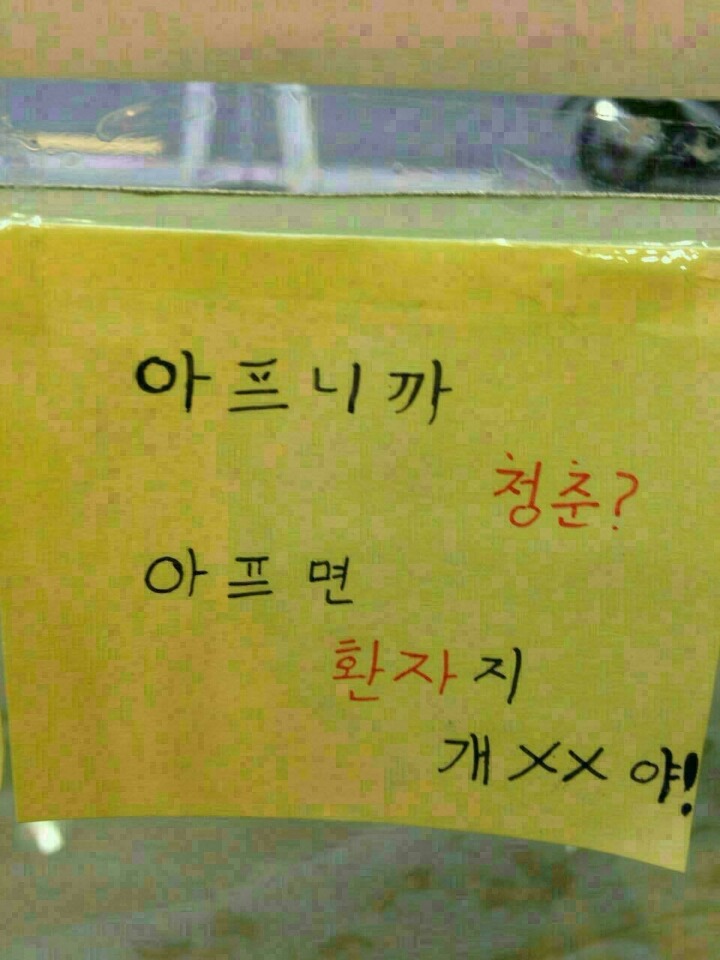 아프니까
청춘?
아프면
환자지
개XX야!